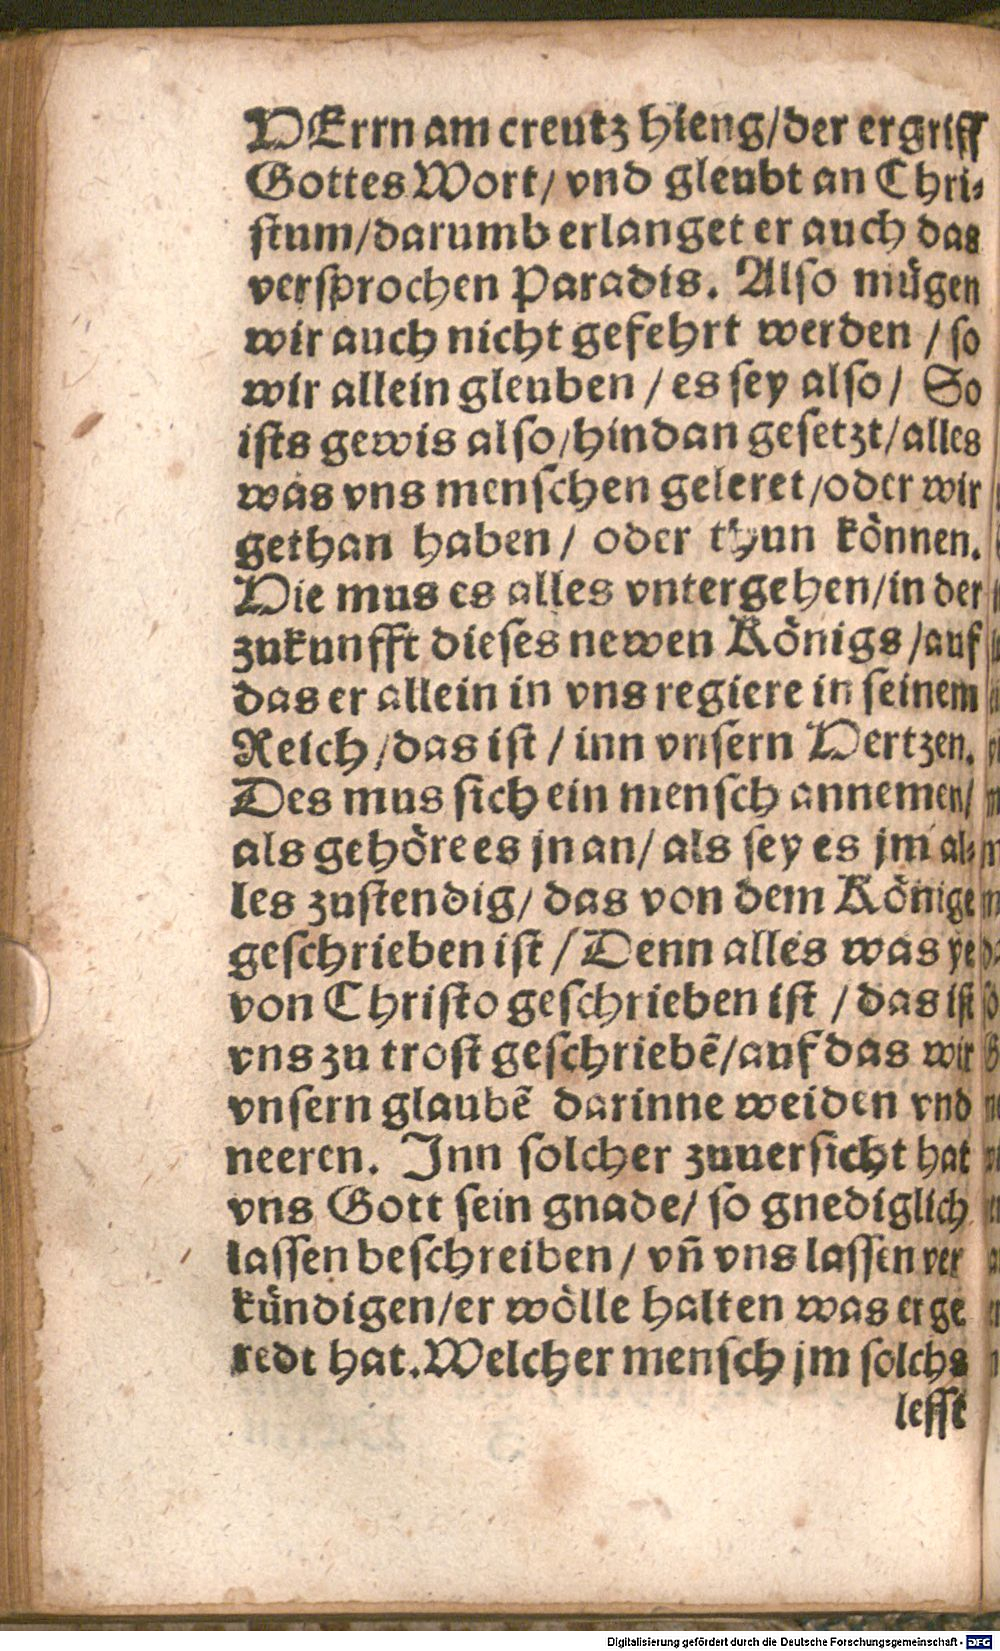 HErrn am creutz hieng/der ergriff
Gottes Wort/ vnd gleubt an Chri⸗
ſtum/darumb erlanget er auch das
verſprochen Paradis. Alſo muͤgen
wir auch nicht gefehrt werden / ſo
wir allein gleuben / es ſey alſo/ So
iſts gewis alſo/hindan geſetzt/alles
was vns menſchen geleret/oder wir
gethan haben/ oder thun koͤnnen.
Hie mus es alles vntergehen/in der
zukunfft dieſes newen Koͤnigs /auf
das er allein in vns regiere in ſeinem
Reich/das iſt / inn vnſern Hertzen.
Des mus ſich ein menſch annemen/
als gehoͤre es jn an/ als ſey es jm al⸗
les zuſtendig/ das von dem Koͤnige
geſchrieben iſt / Denn alles was ye
von Chriſto geſchrieben iſt / das iſt
vns zu troſt geſchriebē/auf das wir
vnſern glaubē darinne weiden vnd
neeren. Inn ſolcher zuuerſicht hat
vns Gott ſein gnade/ ſo gnediglich
laſſen beſchreiben / vn̄ vns laſſen ver
kuͤndigen/er woͤlle halten was er ge
redt hat. Welcher menſch jm ſolchs
leſſt
Digitalisierung gefördert durch die Deutsche Forschungsgemeinschaft - DFG